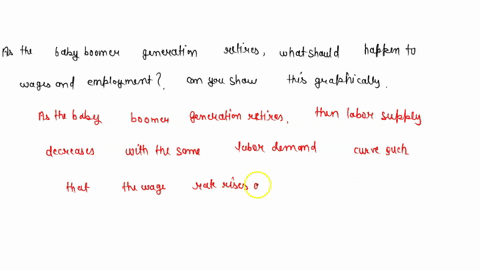 As the baby boomer generation retires, what should happen to
wages and employment? can you show this graphically.
As the baby boomer generation retires, then labor supply
decreases with the same labor demand curve such
that the wage rate rises